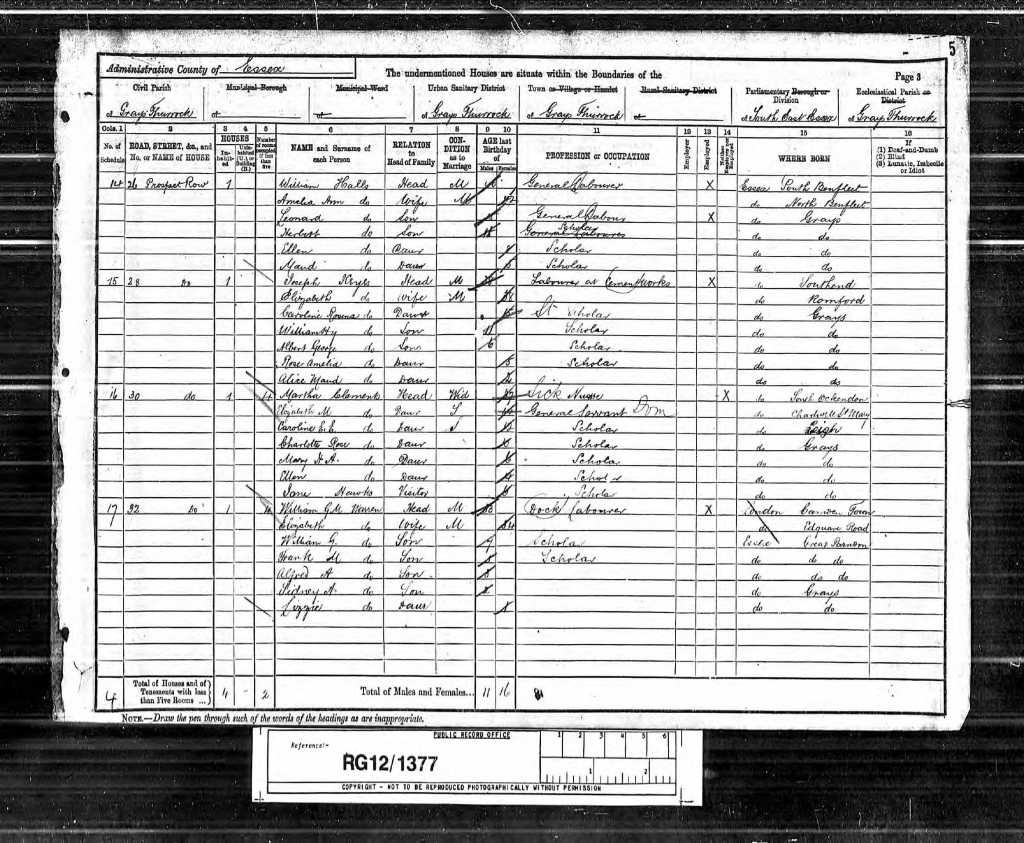 5
Administrative County of Essex
The undermentioned Houses are situate within the Boundaries of the
Page 3
Civil Parish Municipal Borough Municipal Ward Urban Sanitary District Town or Village or Hamlet Rural Sanitary District Parliamentary Borough or Division Ecclesiastical Parish or District
of Grays Thurrock of of of Grays Thurrock of Grays Thurrock of of South East Essex of Grays Thurrock
Cols. 1 2 3 4 5 6 7 8 9 10 11 12 13 14 15 16
No. of Schedule ROAD, STREET, &c., and No. or NAME of HOUSE HOUSES Inhabited Uninhabited (U.), or Building (B.) Number of rooms occupied if less than five NAME and Surname of each Person RELATION to Head of Family CONDITION as to Marriage AGE last Birthday of Males Females PROFESSION or OCCUPATION Employer Employed Neither Employer nor Employed WHERE BORN If (1) Deaf-and-Dumb (2) Blind (3) Lunatic, Imbecile or Idiot
14 26 Prospect Row 1 William Halls Head M General Labourer X Essex South Benfleet
Amelia Ann do Wife M do North Benfleet
Leonard do Son General Labour X do Grays
Herbert do Son Scholar General Labourer do do
Ellen do Daur Scholar do do
Maud do Daur Scholar do do
15 28 Do 1 Joseph Head M Labourer at Cement Works X Southend
Elizabeth do Wife M do Romford
Caroline do Daur Scholar do Grays
William Hy do Son 11 Scholar do do
Albert George do Son Scholar do do
Rose Amelia do Daur Scholar do do
Alice Maud do Daur do do
16 30 do 1 4 Martha Clements Head Wid Sick Nurse X do South Ockendon
Elizabeth M. do Daur S General Servant Dom do Chadwell St Mary
Caroline E. E. do Daur Scholar do Leigh
Charlotte Rose do Daur Scholar do Grays
Mary H. A. do Daur Scholar do do
Ellen do Daur Scholar do do
Jane Hawks Visitor Schola do do
17 32 Do 1 4 William G. M. Warren Head M Dock Labourer X London Camden Town
Elizabeth do Wife M do Edgware Road
William G. do Son 9 Schola Essex Great
Frank M do Son Scholar do do do
Alfred A do Son do do do
Sidney A. do Son do Grays
Lizzie do Daur do do
4 Total of Houses and of Tenements with less than Five Rooms 4 - 2 Total of Males and Females... 11 16
NOTE.—Draw the pen through such of the words of the headings as are inappropriate.
PUBLIC RECORD OFFICE
1 2 3 4 5 6
Reference:-
RG12/1377
1 2
COPYRIGHT - NOT TO BE REPRODUCED PHOTOGRAPHICALLY WITHOUT PERMISSION